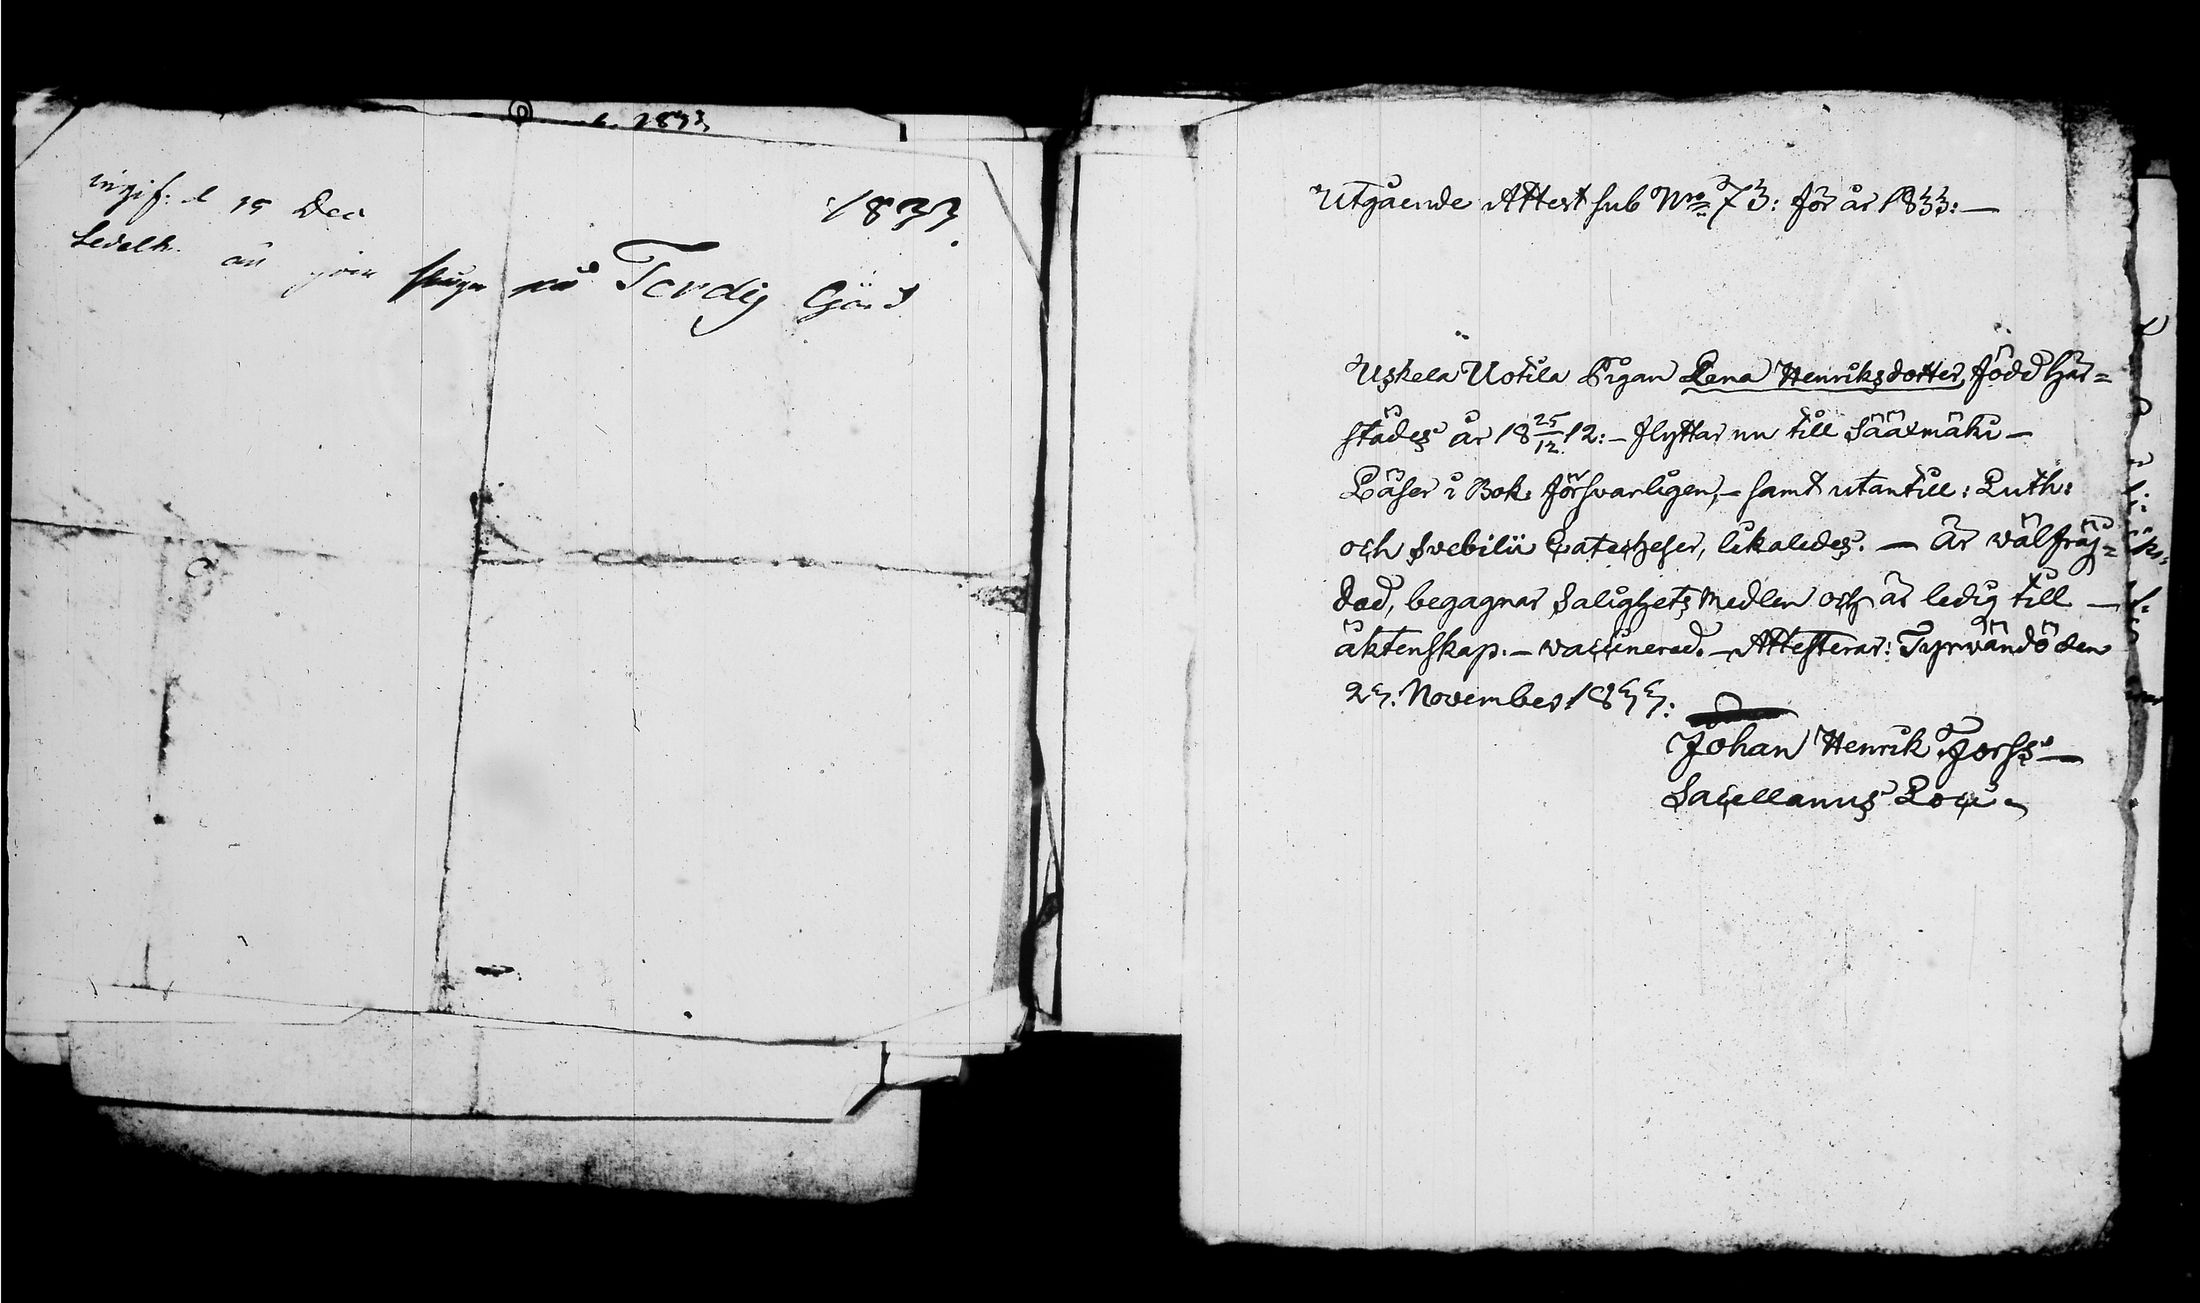 1833
ingif: d 19 Dec
1833
Ferdig Gjord
Utgående Attest sub Nro 73: för år 1833: —
Uskela Uotila Pigan Lena Henriksdotter, född här=
städes år 18 25/12 12: — flyttar nu till Sääxmäki —
Läser i Bok försvarligen, — samt utantill: Luth:
och Svebilii Catecheser, likaledes. — Är wälfräj=
dad, begagnar Salighets Medlen och är ledig till —
äktenskap. — vaccinerad. — Attesterar: Tyrwändö den
27. November 1833:
Johan Henrik Forss —
Sacellanus Loci